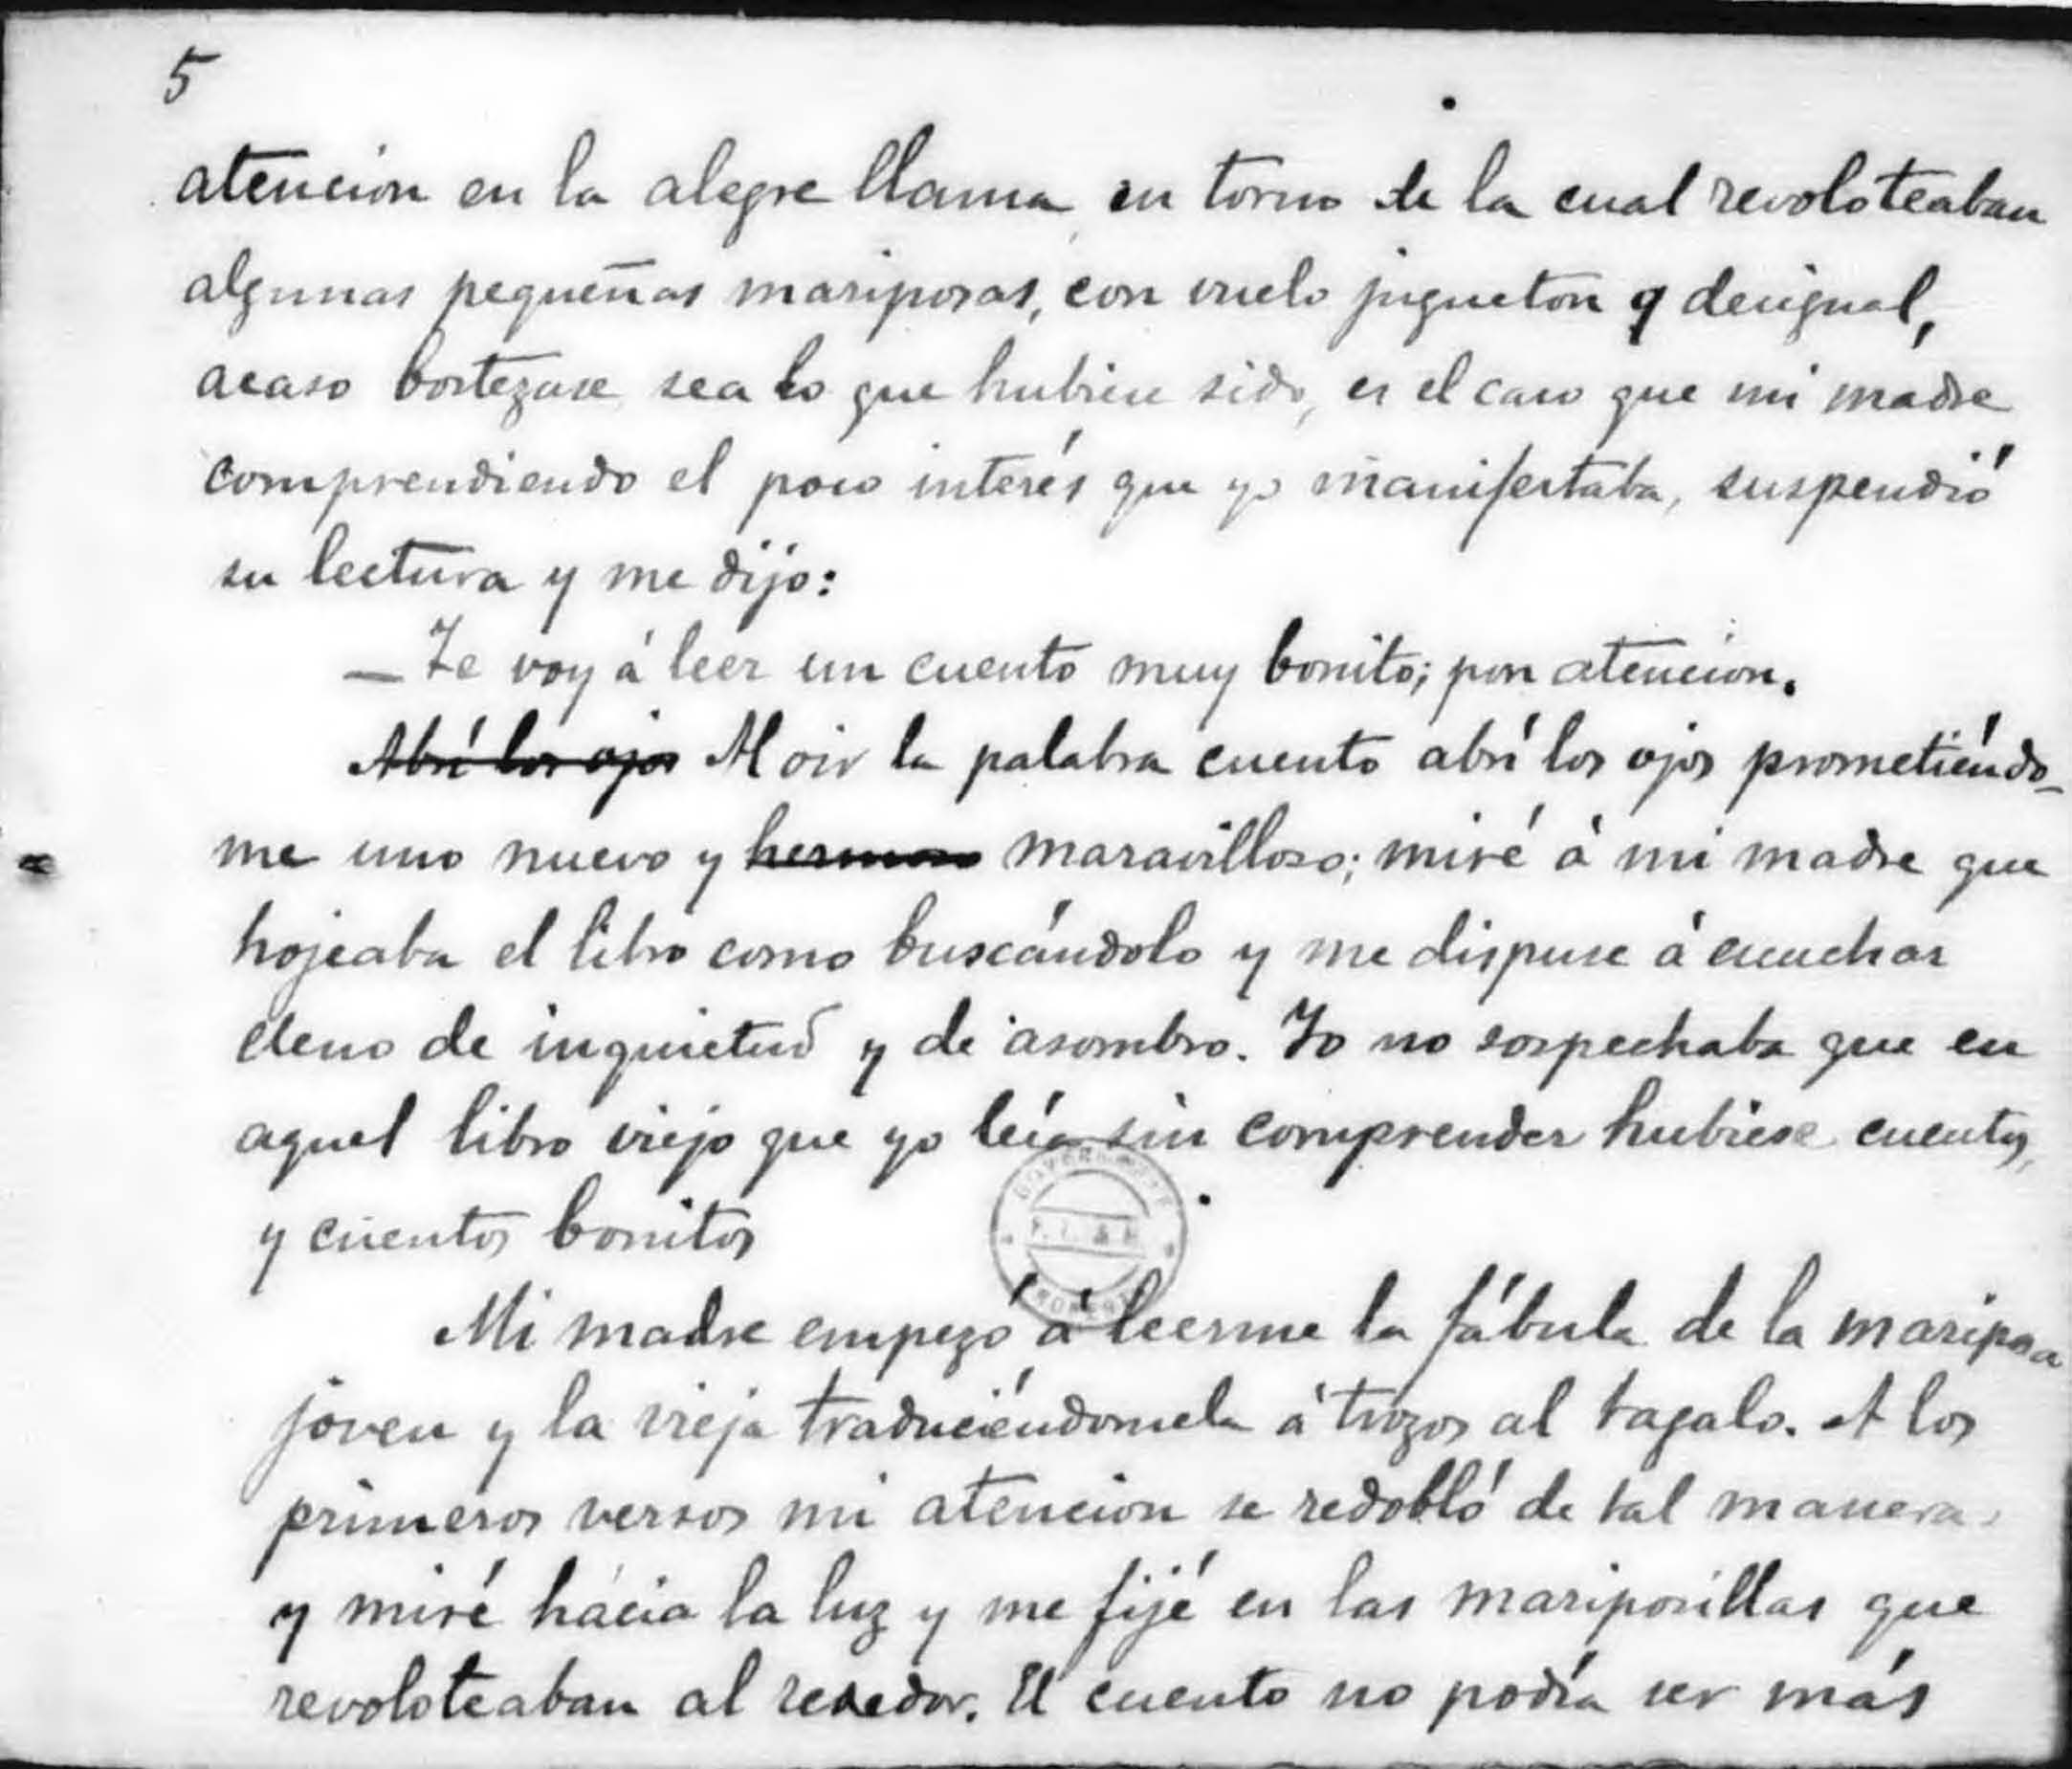 5
atencion en la alegre llama en torno de la cual revoloteaban
algunas pequeñas mariposas, con vuelo jugueton y desigual,
acaso bostezase sea lo que hubiese sido, es el caso que mi madre
comprendiendo el poco interés que yo manifestaba, suspendió
su lectura y me dijo:
— Te voy á leer un cuento muy bonito; pon atencion.
Abrí los ojos Al oir la palabra cuento abrí los ojos prometiéndo-
me uno nuevo y hermoso maravilloso; miré á mi madre que
hojeaba el libro como buscándolo y me dispuse á escuchar
lleno de inquietud y de asombro. Yo no sospechaba que en
aquel libro viejo que yo leía sin comprender hubiese cuentos,
y cuentos bonitos
Mi madre empezó á leerme la fábula de la mariposa
joven y la vieja traduciéndomela á trozos al tagalo. A los
primeros versos mi atencion se redobló de tal manera
y miré hácia la luz y me fijé en las mariposillas que
revoloteaban al rededor. El cuento no podía ser más